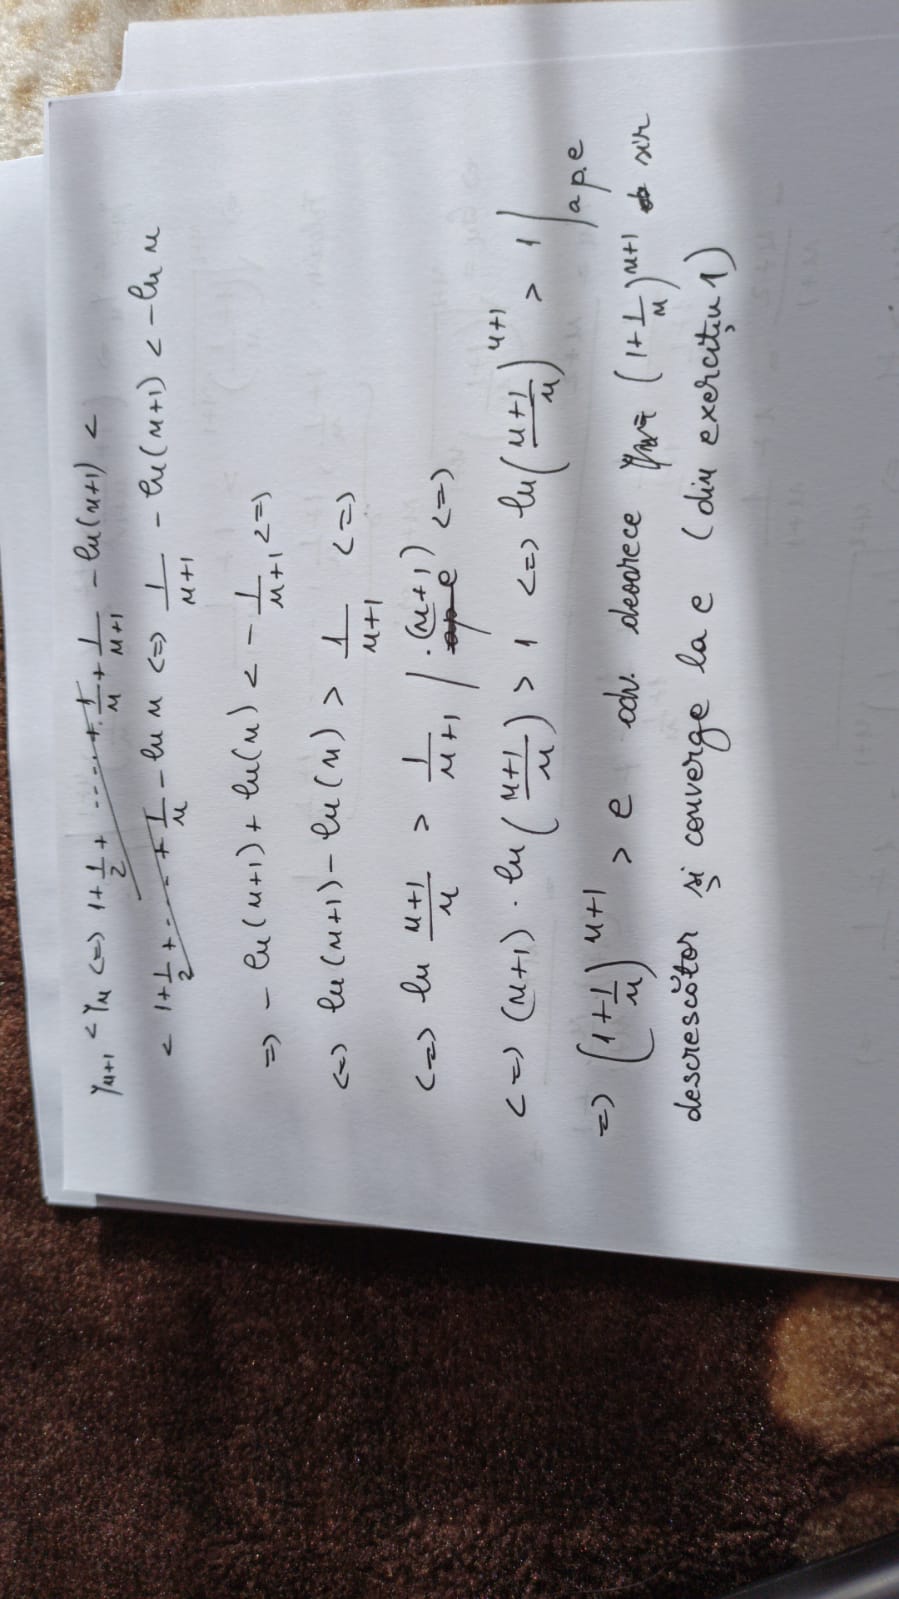 yₙ₊₁ < yₙ <=> 1 + 1/2 + ... + 1/n + 1/(n+1) - ln(n+1) <
< 1 + 1/2 + ... + 1/n - ln n <=> 1/(n+1) - ln(n+1) < -ln n
=> - ln(n+1) + ln(n) < - 1/(n+1) <=>
<=> ln(n+1) - ln(n) > 1/(n+1) <=>
<=> ln (n+1)/n > 1/(n+1) | ·(n+1) <=>
<=> (n+1) · ln((n+1)/n) > 1 <=> ln((n+1)/n)ⁿ⁺¹ > 1 | a p.e
=> (1 + 1/n)ⁿ⁺¹ > e adv. deoarece (1 + 1/n)ⁿ⁺¹ sir
descrescător și converge la e (din exercițiu 1)